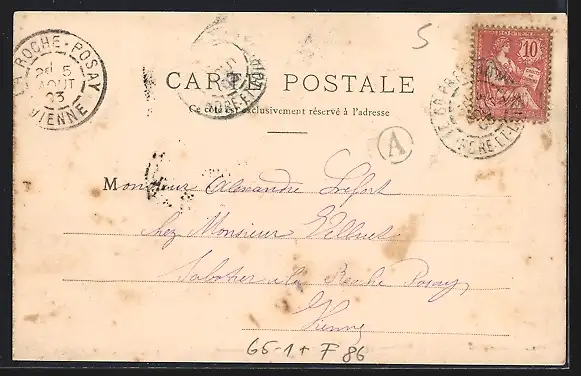 5
LA ROCHE-POSAY
5
AOUT
03
VIENNE
POSTES
10
CARTE POSTALE
Ce côté est exclusivement réservé à l'adresse
INDRE-ET-L
A
Monsieur Alexandre Lefort
chez Monsieur
Sabotier à la Roche Posay
Vienne
65-1+ F 86